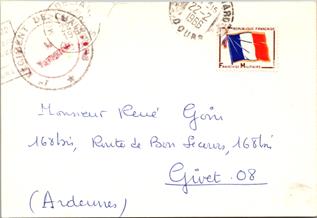 REGIMENT DE CHASSE
22-2
1966
DOUAI
REPUBLIQUE FRANÇAISE
FRANCHISE MILITAIRE
Monsieur René Goin
168bis, Route de Bon Secours, 168bis
Givet. 08
(Ardennes)